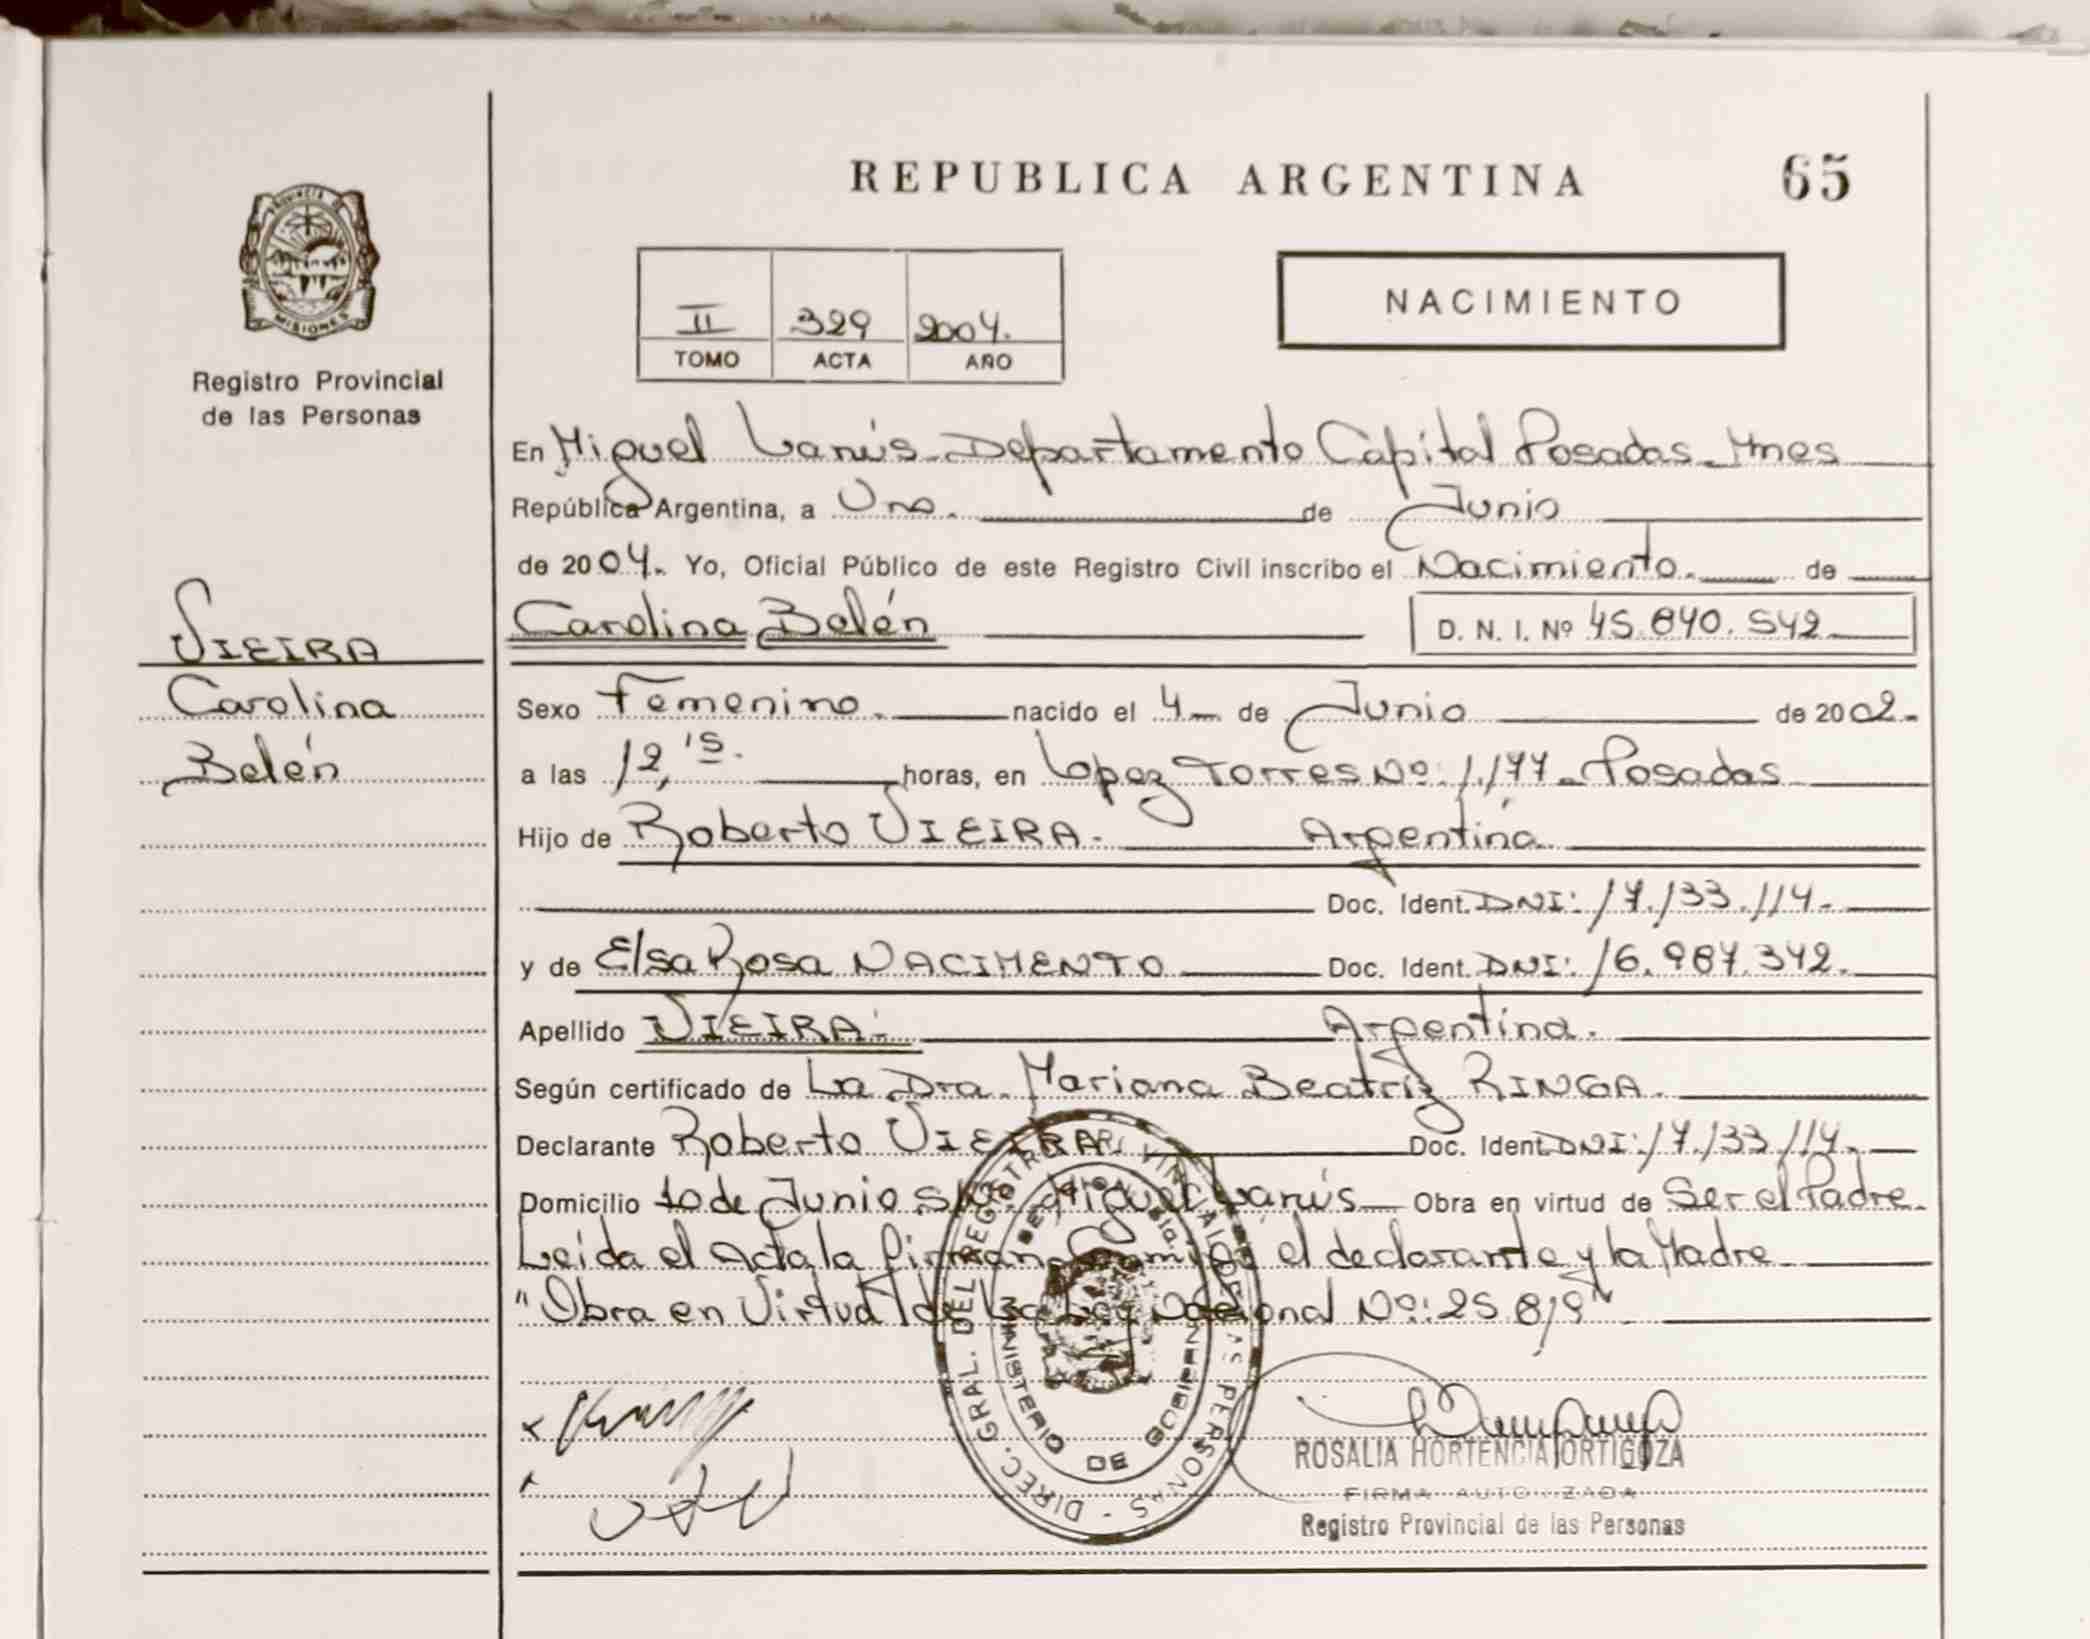 REPUBLICA ARGENTINA
65
PROVINCIA DE
MISIONES
Registro Provincial
de las Personas
II 329 2004.
TOMO ACTA AÑO
NACIMIENTO
En Miguel Lanús - Departamento Capital Posadas - Mnes
República Argentina, a Uno. de Junio
de 2004. Yo, Oficial Público de este Registro Civil inscribo el Nacimiento. de
VIEIRA
Carolina
Belén
Carolina Belén D. N. I. Nº 45.840.542
Sexo Femenino. nacido el 4 de Junio de 2002.
a las 12,15. horas, en Lopez Torres Nº: 1.177 - Posadas
Hijo de Roberto VIEIRA. Argentina
Doc. Ident. DNI: 17.133.114.
y de Elsa Rosa NACIMENTO Doc. Ident. DNI: 16.987.342.
Apellido VIEIRA. Argentina.
Según certificado de La Dra. Mariana Beatríz RINGA.
Declarante Roberto VIEIRA Doc. Ident. DNI: 17.133.114.
Domicilio 10 de Junio S/Nº Miguel Lanús Obra en virtud de Ser el Padre.
Leida el Acta la firman Conmigo el declarante y la Madre
"Obra en Virtud de La Ley Nacional Nº: 25.819"
DIREC. GRAL. DEL REGISTRO PROVINCIAL DE LAS PERSONAS
MINISTERIO DE GOBIERNO
ROSALIA HORTENCIA ORTIGOZA
FIRMA AUTORIZADA
Registro Provincial de las Personas